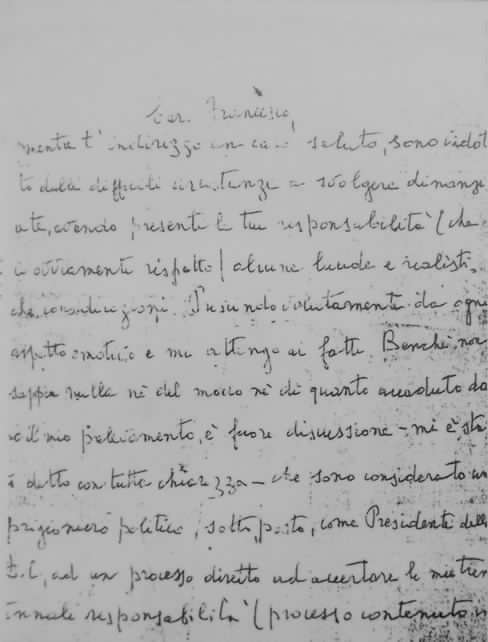 Caro Francesco,
mentre t'indirizzo un caro saluto, sono indot
to dalle difficili circostanze a svolgere dinanzi
a te, avendo presenti le tue responsabilità (che
io ovviamente rispetto) alcune lucide e realisti-
che considerazioni. Prescindo volutamente da ogni
aspetto emotivo e mi attengo ai fatti. Benché non
sappia nulla nè del modo nè di quanto accaduto do
po il mio prelevamento, è fuori discussione - mi è sta
to detto con tutta chiarezza - che sono considerato un
prigioniero politico, sottoposto, come Presidente della
D.C, ad un processo diretto ad accertare le mie tren
tennali responsabilità (processo contenuto in